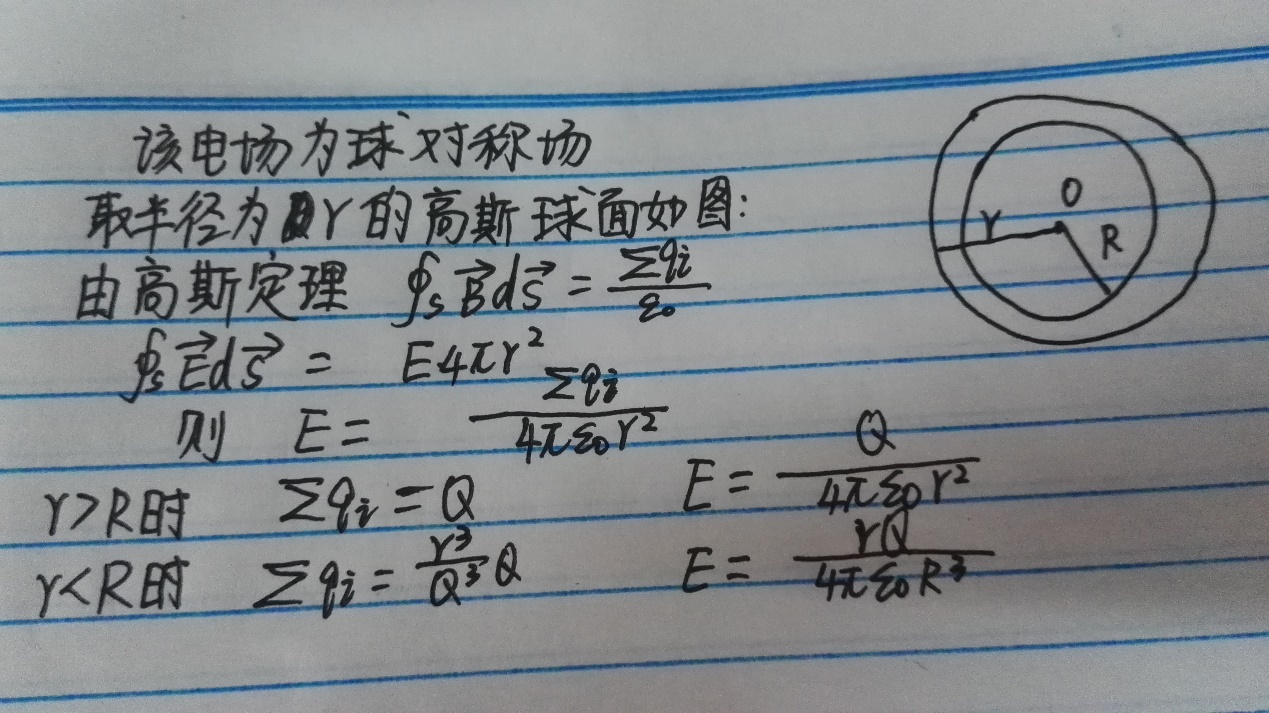 该电场为球对称场
取半径为r的高斯球面如图:
由高斯定理 ∮ₛB⃗dS⃗ = Σqᵢ/ε₀
∮ₛE⃗dS⃗ = E4πr²
则 E = Σqᵢ/4πε₀r²
r>R时 Σqᵢ = Q E = Q/4πε₀r²
r<R时 Σqᵢ = r³/Q³ Q E = rQ/4πε₀R³
O
r
R